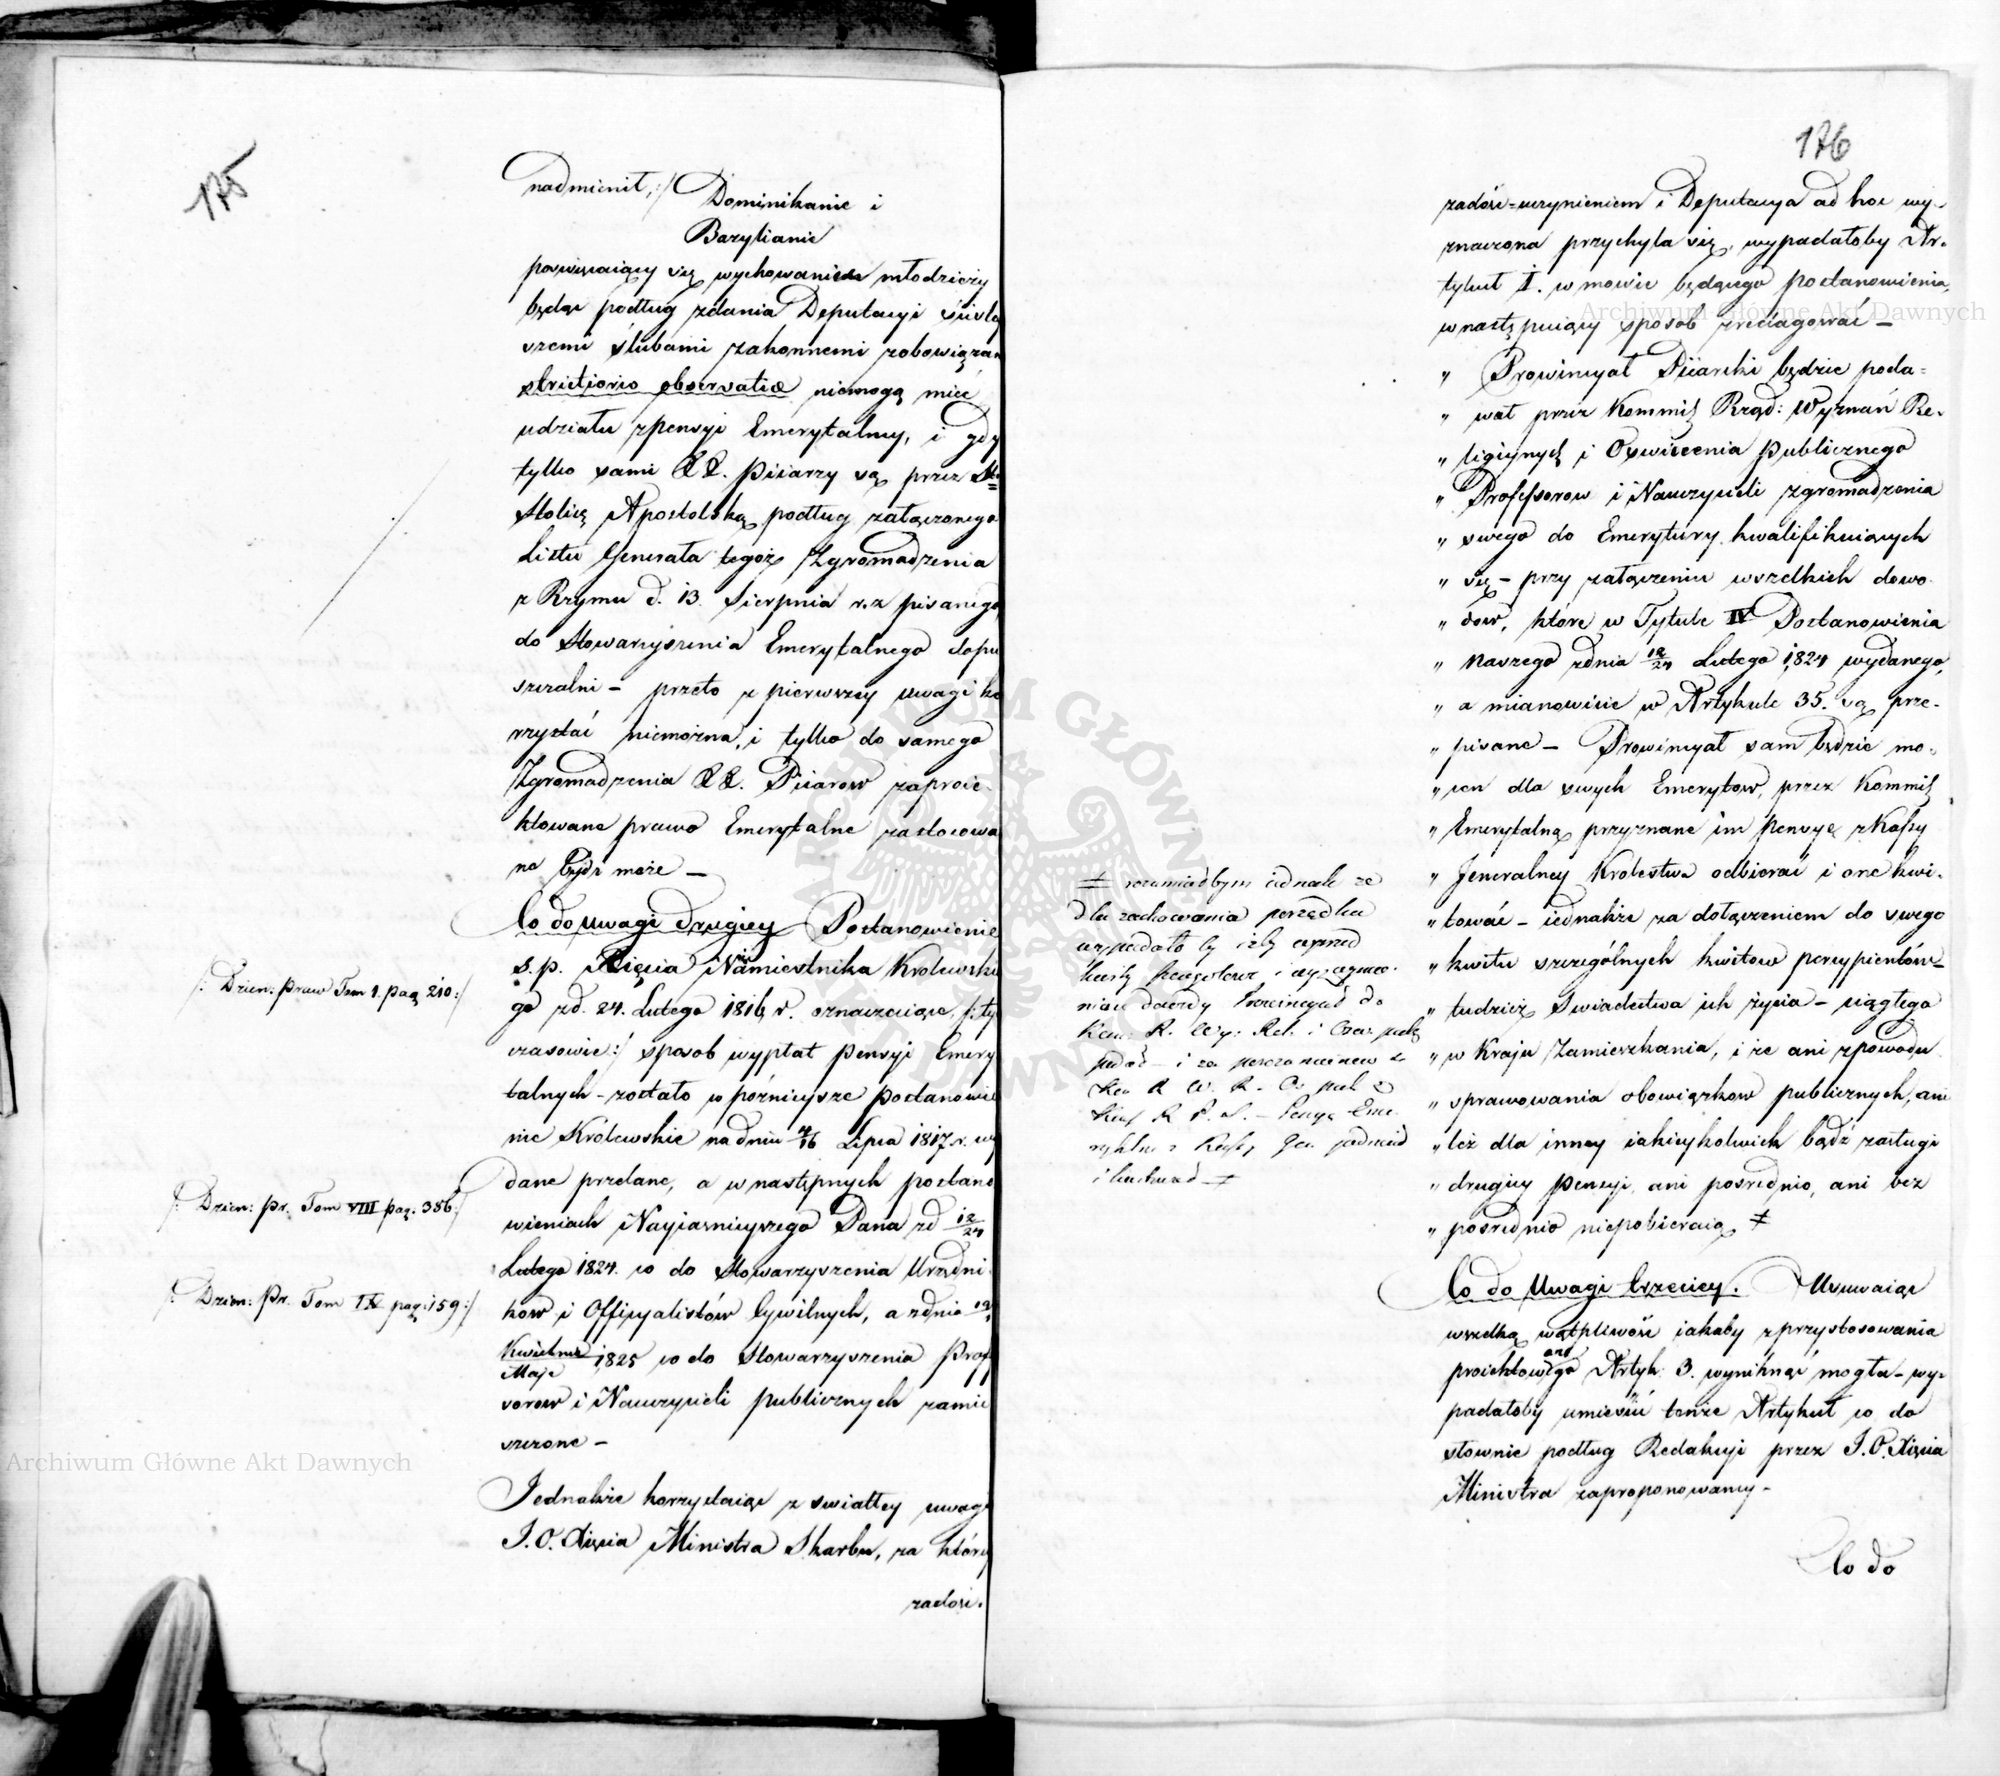 175
nadmienił,:/ Dominikanie i
Bazylianie
poświęcaiący się wychowaniem młodzieży
będąc podług zdania Deputacyi ściśley
szemi ślubami zakonnemi zobowiązan
strictioris observatiæ niemogą mieć
udziału z pensyi Emerytalney, i gdy
tylko sami XX. Piiarzy są przez
Stolicę Apostolską podług załączonego
Listu Generała tegoż Zgromadzenia
z Rzymu d. 13. Sierpnia r. z pisanego
do Stowarzyszenia Emerytalnego dopu
szczalni – przeto z pierwszey uwagi ko
rzystać niemożna, i tylko do samego
Zgromadzenia XX. Piiarow zaproie-
ktowane prawo Emerytalne zastosowa
ne bydź może —
Co do uwagi drugiey Postanowienie
ś. p. Xięcia Namiestnika Królewski
go z d. 24. Lutego 1816 r. oznaczaiące, /: ty
czasowie:/ sposob wypłat pensyi Emery
talnych – zostało w późnieysze postanowie
nie Królewskie na dniu 4/16 Lipca 1817. r. wy
dane przelane, a w następnych postano
wieniach Nayjaśnieyszego Pana z d 12/24
Lutego 1824. co do Stowarzyszenia Urzędni
kow i Officyalistów Cywilnych, a z dnia
Kwietnia
Maja 1825 co do Stowarzyszenia Prof
sorow i Nauczycieli publicznych zamie
szczone –
Jednakże korzystaiąc z światłey uwagi
J. O. Xięcia Ministra Skarbu, za którey
zadosi.
/: Dzien: Praw Tom 1. pag 210:/
/: Dzien: Pr. Tom VIII pag. 386:/
/: Dzien: Pr. Tom IX pag. 159:/
176
zadość=uczynieniem i Deputacya ad hoc wy-
znaczona przychyla się, wypadałoby Ar-
tykuł 1. w mowie będącego postanowienia,
w następuiący sposób zredagować —
„ Prowincyał Piiarski będzie poda=
„ wał przez Kommiss Rząd: Wyznań Re-
„ ligiynych i Oświecenia Publicznego
„ Professorow i Nauczycieli zgromadzenia
„ swego do Emerytury kwalifikuiących
„ się – przy załączeniu wszelkich dowo-
„ dow, które w Tytule IV Postanowienia
„ Naszego z dnia 12/24 Lutego 1824 wydanego,
„ a mianowicie w Artykule 35. są prze-
„ pisane – Prowincyał sam będzie mo-
„ cen dla swych Emerytow, przez Kommiss
„ Emerytalną przyznane im pensye z Kassy
„ Jeneralney Krolestwa odbierać i one kwi-
„ tować – iednakże za dołączeniem do swego
„ kwitu szczególnych kwitow percypientów –
„ tudzież Świadectwa ich życia – ciągłego
„ w Kraju Zamieszkania, i że ani z powodu
„ sprawowania obowiązkow publicznych, ani
„ też dla inney iakieykolwiek bądź zasługi
„ drugiey pensyi, ani pośrednio, ani bez
„ pośrednio niepobieraią ‡
‡ rozumiałbym iednak że
dla zachowania porządku
wypadało by iżby
Prowincyał do
Kom: R. Wy: Rel. i Ośw: pub
podał – i za
Kom R W. R. O. pub z
Kom R P. S. – Pensyę Eme
z Kassy Gen
Co do Uwagi trzeciey. Usuwaiąc
wszelką wątpliwość iakaby z przystosowania
proiektowanego Artyk: 3. wyniknąć mogła – wy-
padałoby umieścić tenże Artykuł co do
słownie podług Redakcyi przez J. O. Xięcia
Ministra zaproponowaney –
Co do
Archiwum Główne Akt Dawnych
Archiwum Główne Akt Dawnych
ARCHIWUM GŁÓWNE AKT DAWNYCH